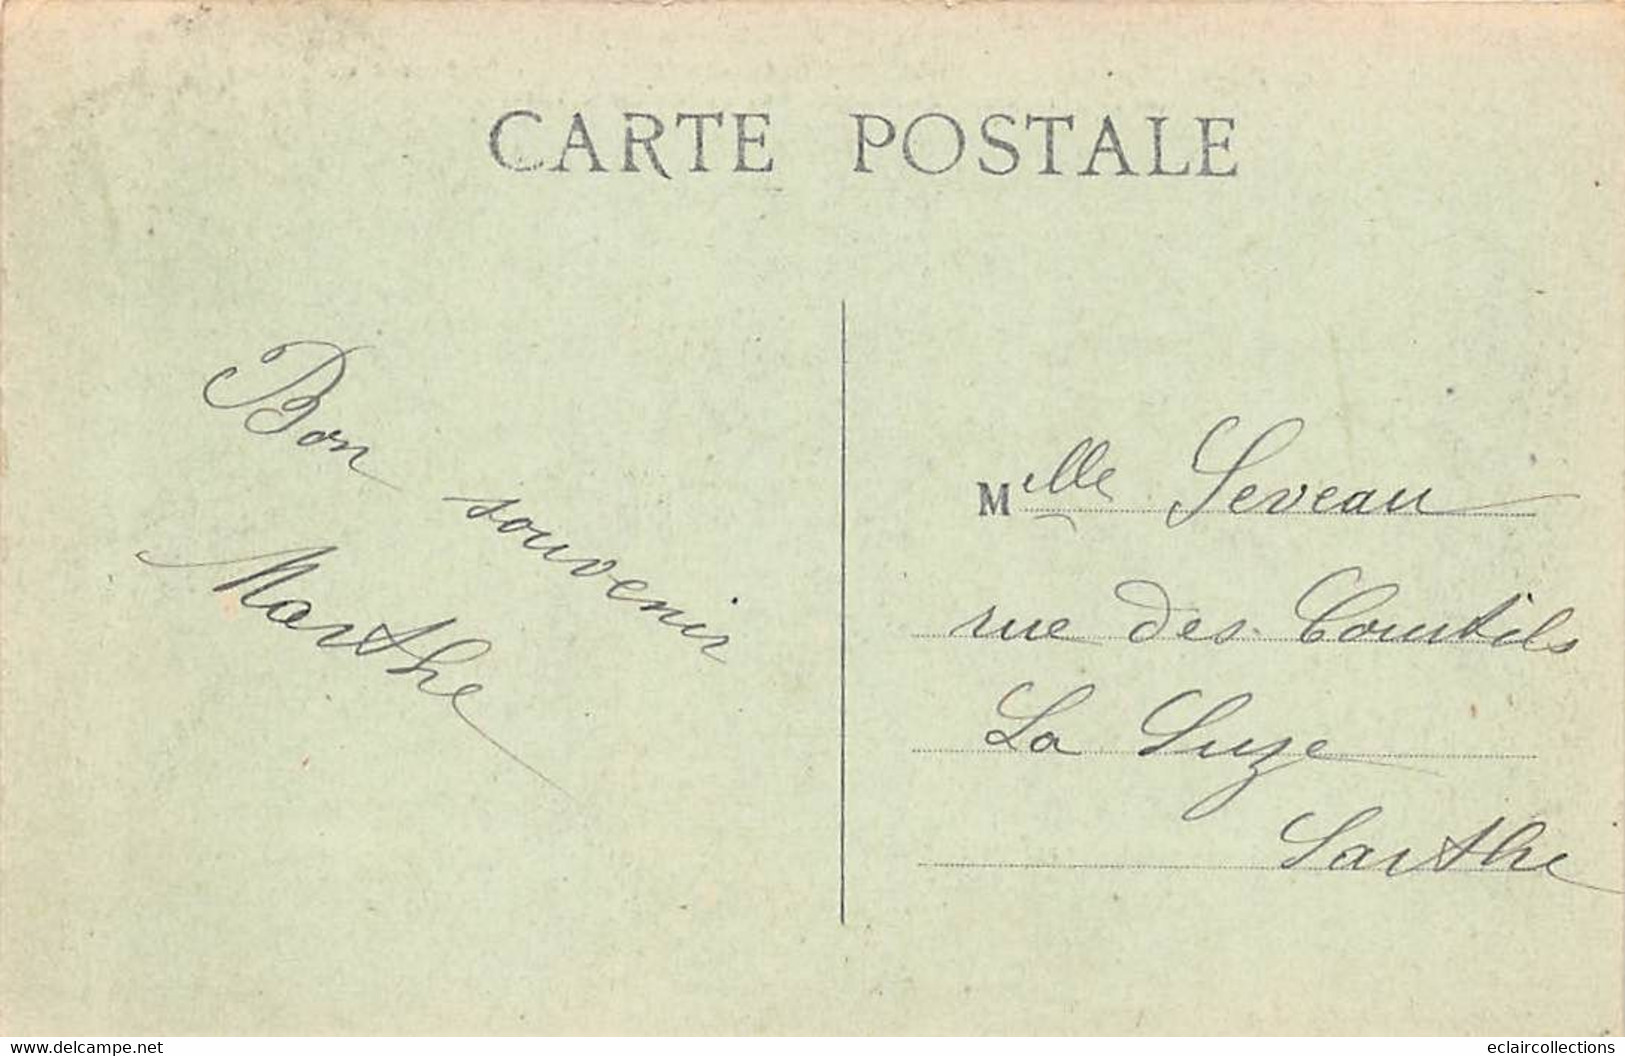 CARTE POSTALE
Bon souvenir
Marthe
Mlle Seveau
rue des Courtils
La Suze
Sarthe
www.delcampe.net
eclaircollections